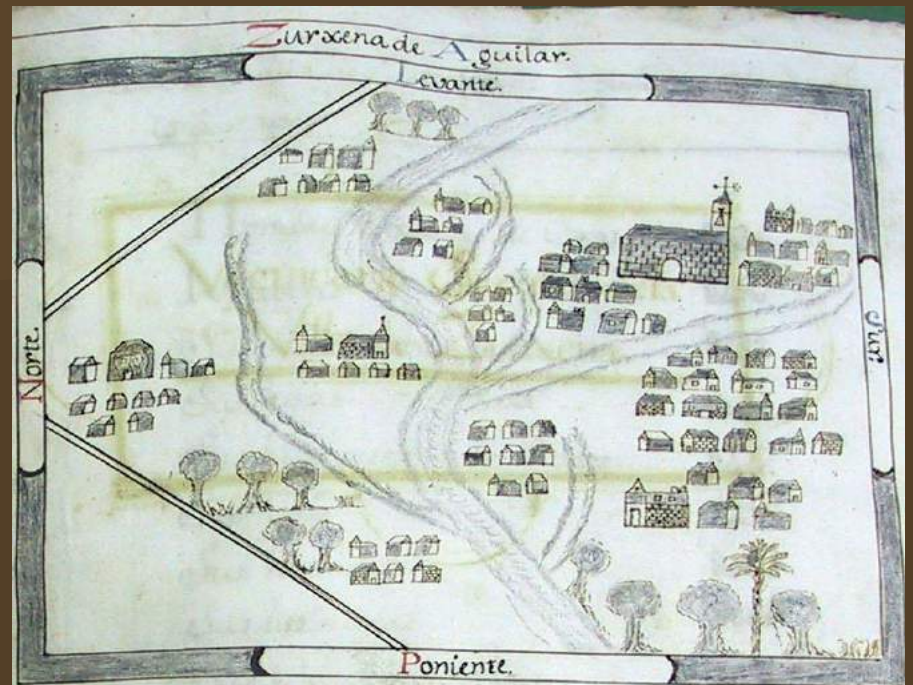 Zurxena de Aguilar.
Levante.
Norte.
Sur.
Poniente.